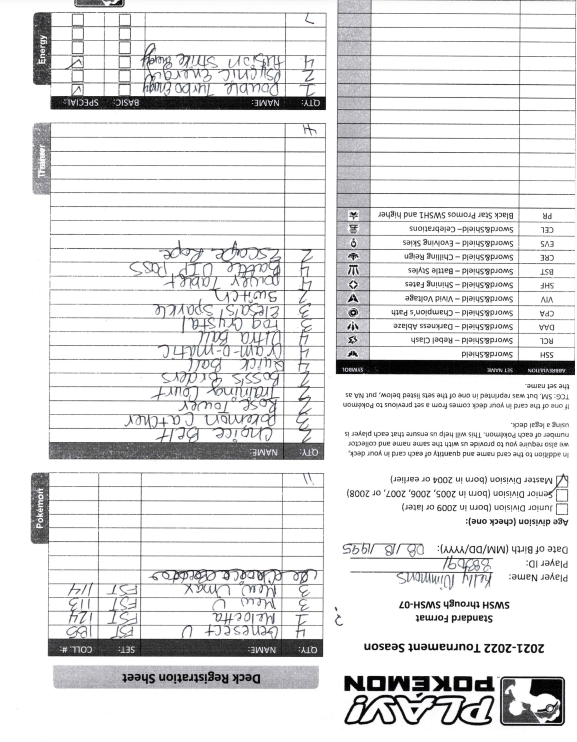 PLAY!
POKÉMON
2021-2022 Tournament Season
Standard Format
SWSH through SWSH-07
Player Name: Kelly Dimmons
Player ID:
Date of Birth (MM/DD/YYYY): 08/18/1995
Age division (check one):
Junior Division (born in 2009 or later)
Senior Division (born in 2005, 2006, 2007, or 2008)
Master Division (born in 2004 or earlier)
In addition to the card name and quantity of each card in your deck,
we also require you to provide us with the same name and collector
number of each Pokémon. This will help us ensure that each player is
using a legal deck.
If one of the card in your deck comes from a set previous to Pokémon
TCG: SM, but was reprinted in one of the sets listed below, put NA as
the set name.
ABBREVIATION SET NAME SYMBOL
SSH Sword&Shield
RCL Sword&Shield – Rebel Clash
DAA Sword&Shield – Darkness Ablaze
CPA Sword&Shield – Champion's Path
VIV Sword&Shield – Vivid Voltage
SHF Sword&Shield – Shining Fates
BST Sword&Shield – Battle Styles
CRE Sword&Shield – Chilling Reign
EVS Sword&Shield – Evolving Skies
CEL Sword&Shield – Celebrations
PR Black Star Promos SWSH1 and higher
Deck Registration Sheet
Pokémon
QTY: NAME: SET: COLL. #:
4 Genesect V FST 185
1 Meloetta FST 124
3 Mew V FST 113
3 Mew Vmax FST 114
11
Trainer
QTY: NAME:
Choice Belt
Pokemon Catcher
Rose Tower
Training Court
Boss's Orders
4 Quick Ball
4 Cram-o-matic
4 Ultra Ball
3 Fog Crystal
3 Elesa's Sparkle
2 Switch
4 Power Tablet
4 Battle VIP Pass
2 Escape Rope
Energy
QTY: NAME: BASIC: SPECIAL:
1 Double Turbo Energy
2 Psychic Energy
4 Fusion Strike Energy
7